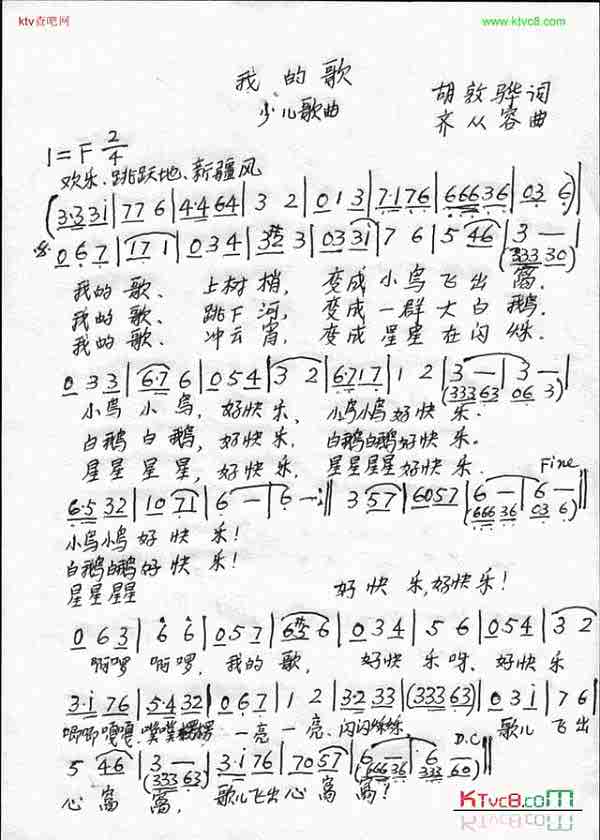 ktv查吧网
www.ktvc8.com
我的歌
少儿歌曲
胡敦骅词
齐从容曲
1=F 2/4
欢乐、跳跃地、新疆风
(3·3 3i|7 7 6|4·4 6 4|3 2|0 1 3|7·1 7 6|6 6 6 3 6|0 3 6)|
0 6 7|1 7 1|0 3 4|3 2 3|0 3 3 i|7 6|5 4 6|3 —|
(3 3 3 3 0)
我的歌、 上树梢, 变成小鸟飞出窝,
我的歌、 跳下河, 变成一群大白鹅.
我的歌、 冲云宵, 变成星星在闪烁.
0 3 3|6·7 6|0 5 4|3 2|6·7 1 7|1 2|3 —|3 —|
(3 3 3 6 3 0 6 3)
小鸟小鸟, 好快乐, 小鸟小鸟好快乐.
白鹅白鹅, 好快乐. 白鹅白鹅好快乐.
星星星星, 好快乐. 星星星星好快乐.
Fine
6·5 3 2|1 0 7 1|6 —|6 —:‖ 3 5 7|6 0 5 7|6 —|6 —‖
(6 6 6 3 6 0 3 6)
小鸟小鸟好快乐!
白鹅白鹅好快乐!
星星星星 好快乐,好快乐!
0 6 3|6 6|0 5 7|6 5 6|0 3 4|5 6|0 5 4|3 2
啊啰啊啰, 我的歌, 好快乐呀、好快乐
3·i 7 6|5·4 3 2|0 6 7|1 2|3·2 3 3|(3 3 3 6 3)|0 3 i|7 6|
唧唧嘎嘎、 一亮一亮、闪闪烁烁 歌儿飞出
D.C
5 4 6|3 —|3·i 7 6|7 0 5 7|6 —|6 ‖
(3 3 3 6 3) (6 6 6 3 6 3 3 6 0)
心窝窝, 歌儿飞出心窝窝!
KTvc8.com